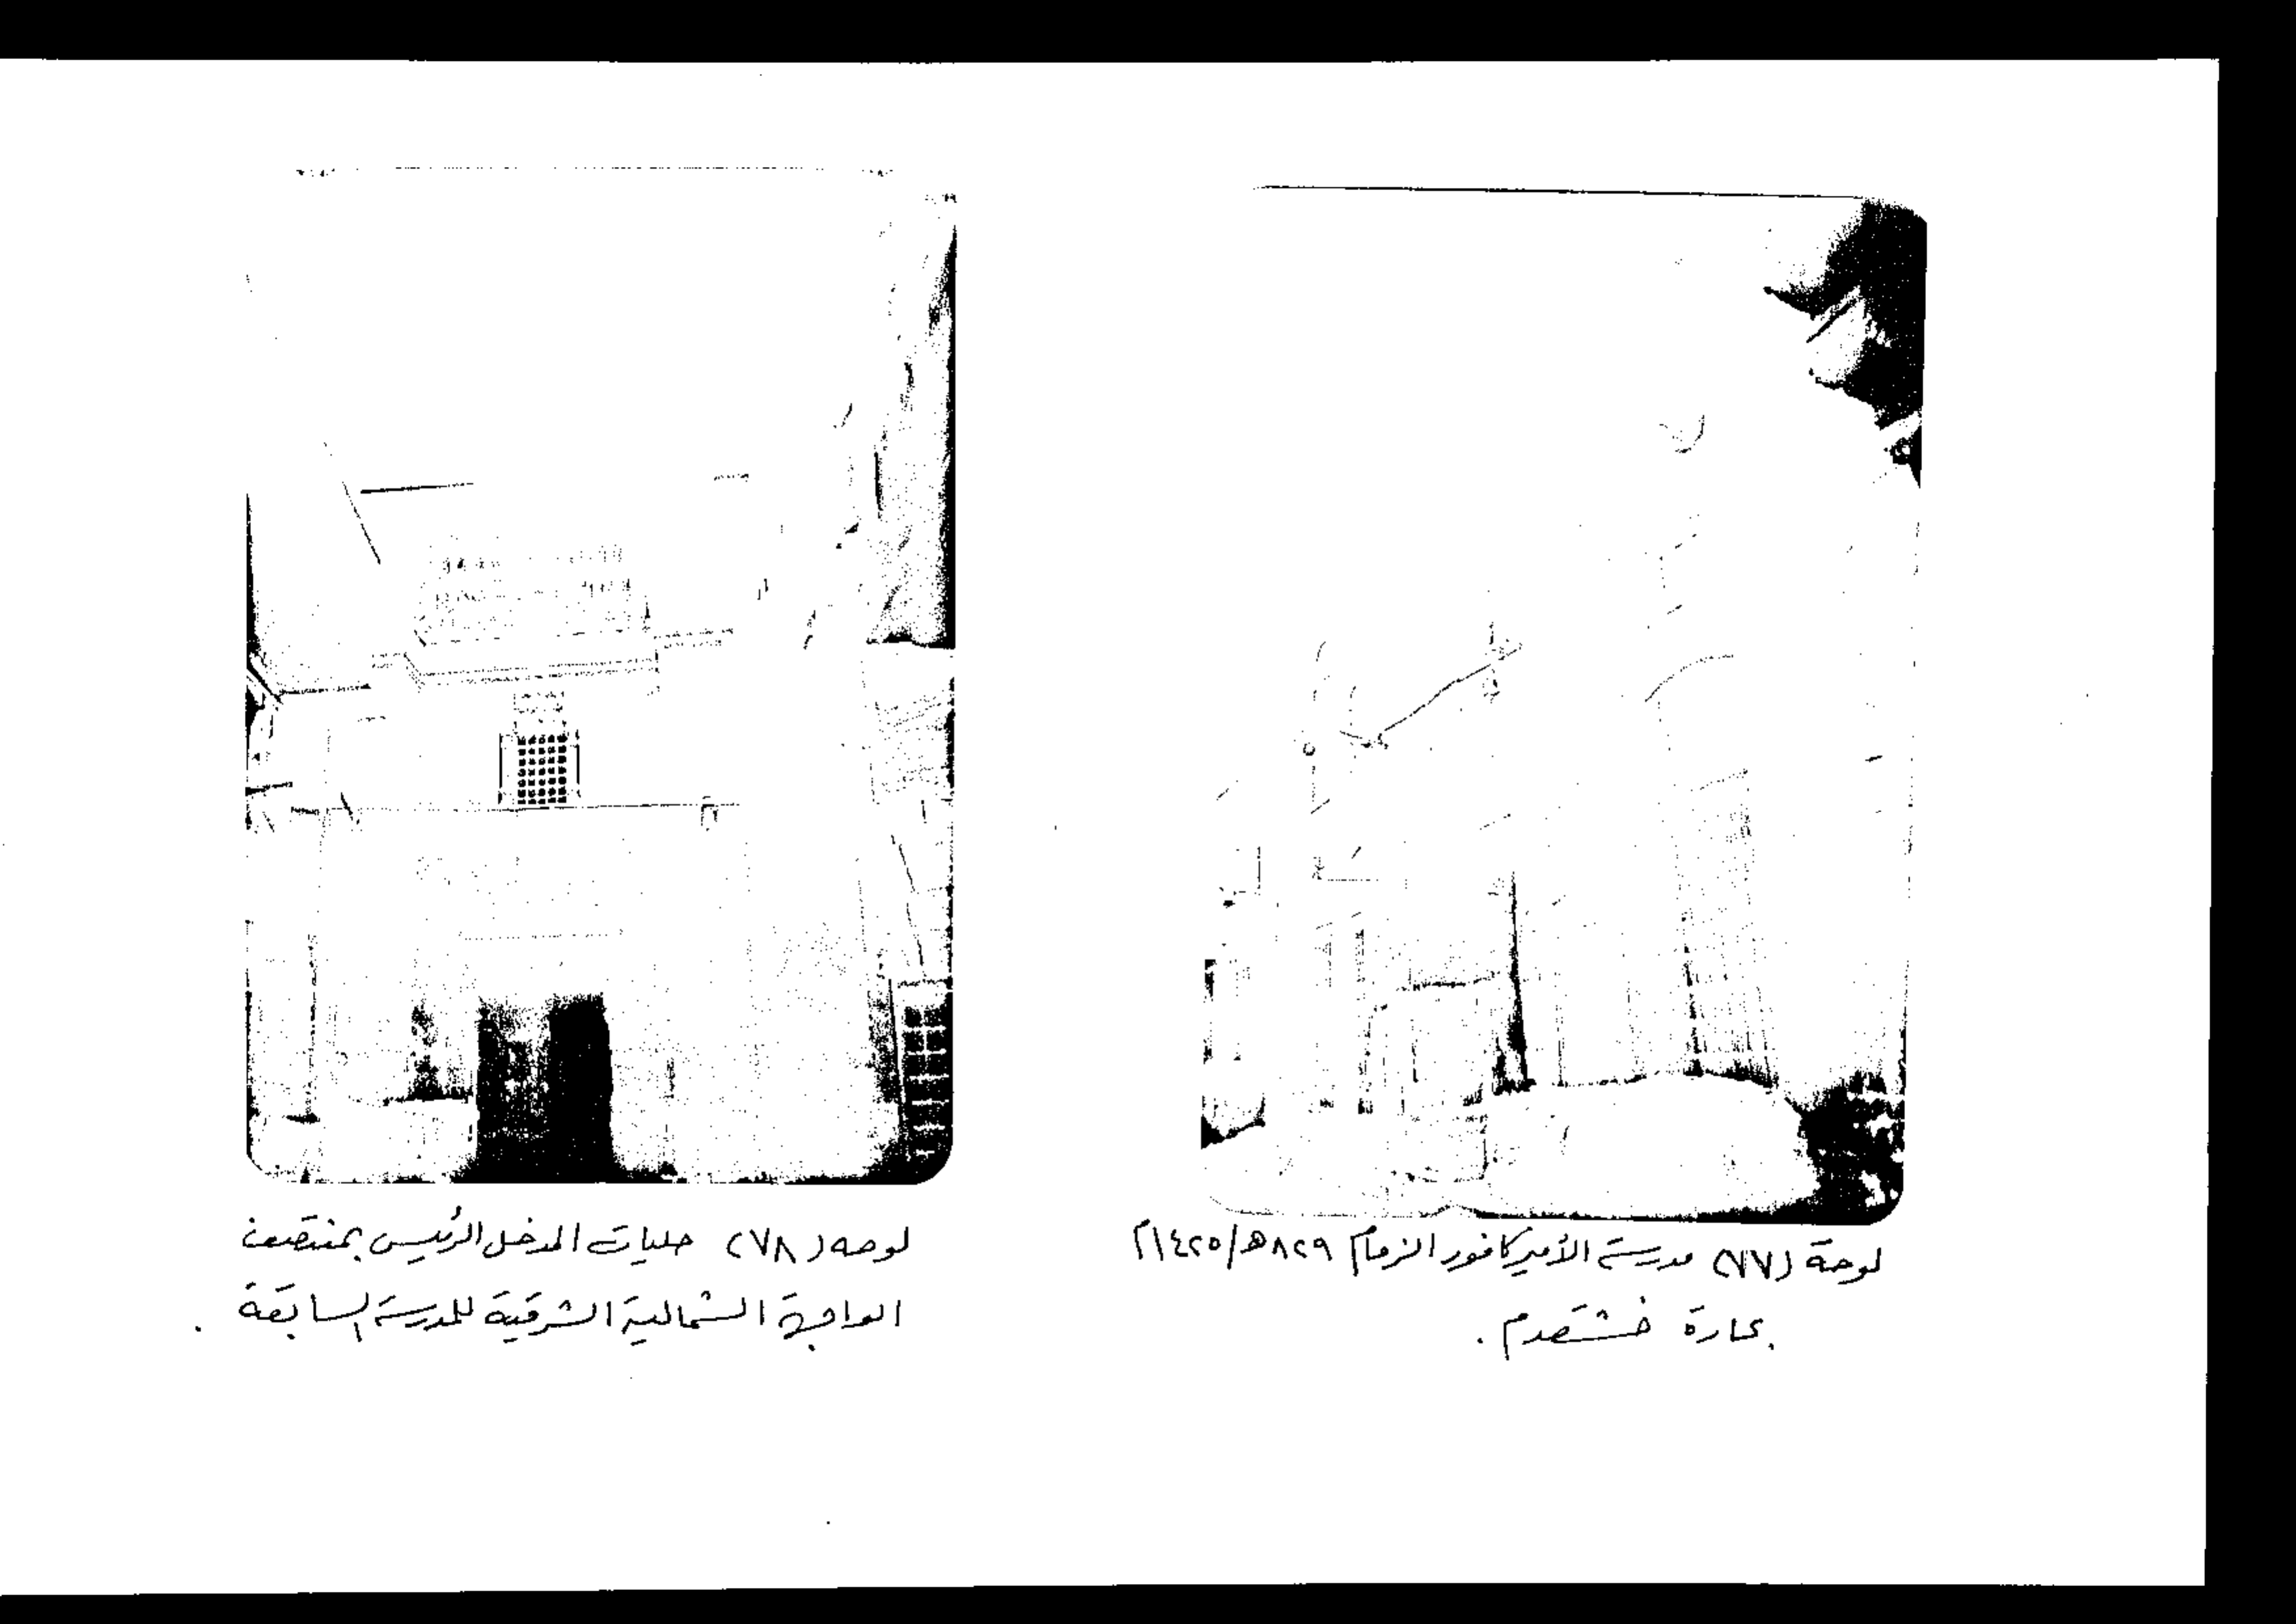 لوحة (٧٧) مدرسة الأمير كافور الزمام ٨٢٩هـ/١٤٢٥م
بحارة خشقدم .
لوحه (٧٨) حليات المدخل الرئيس بمنتصف
الواجهة الشمالية الشرقية للمدرسة السابقة .